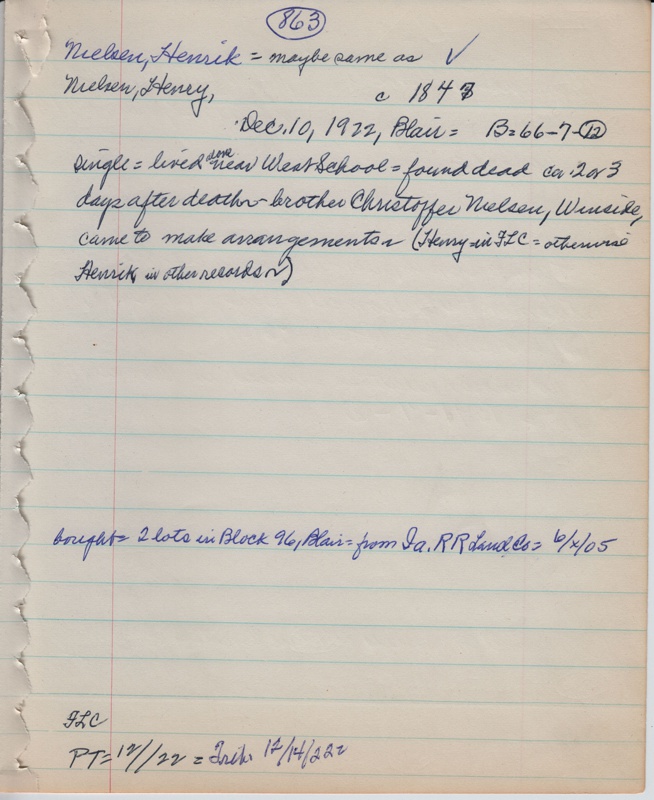 863
Nielsen, Henrik = maybe same as ✓
Nielsen, Henry, c 1843
Dec. 10, 1922, Blair = B=66-7-12
single = lived alone near West School = found dead ca. 2 or 3
days after death - brother Christoffer Nielsen, Winside,
came to make arrangements (Henry in FLC = otherwise
Henrik in other records)
bought = 2 lots in Block 96, Blair = from Ia. RR Land Co = 6/x/05
FLC
PT=12/ /22 = Trib. 12/14/22